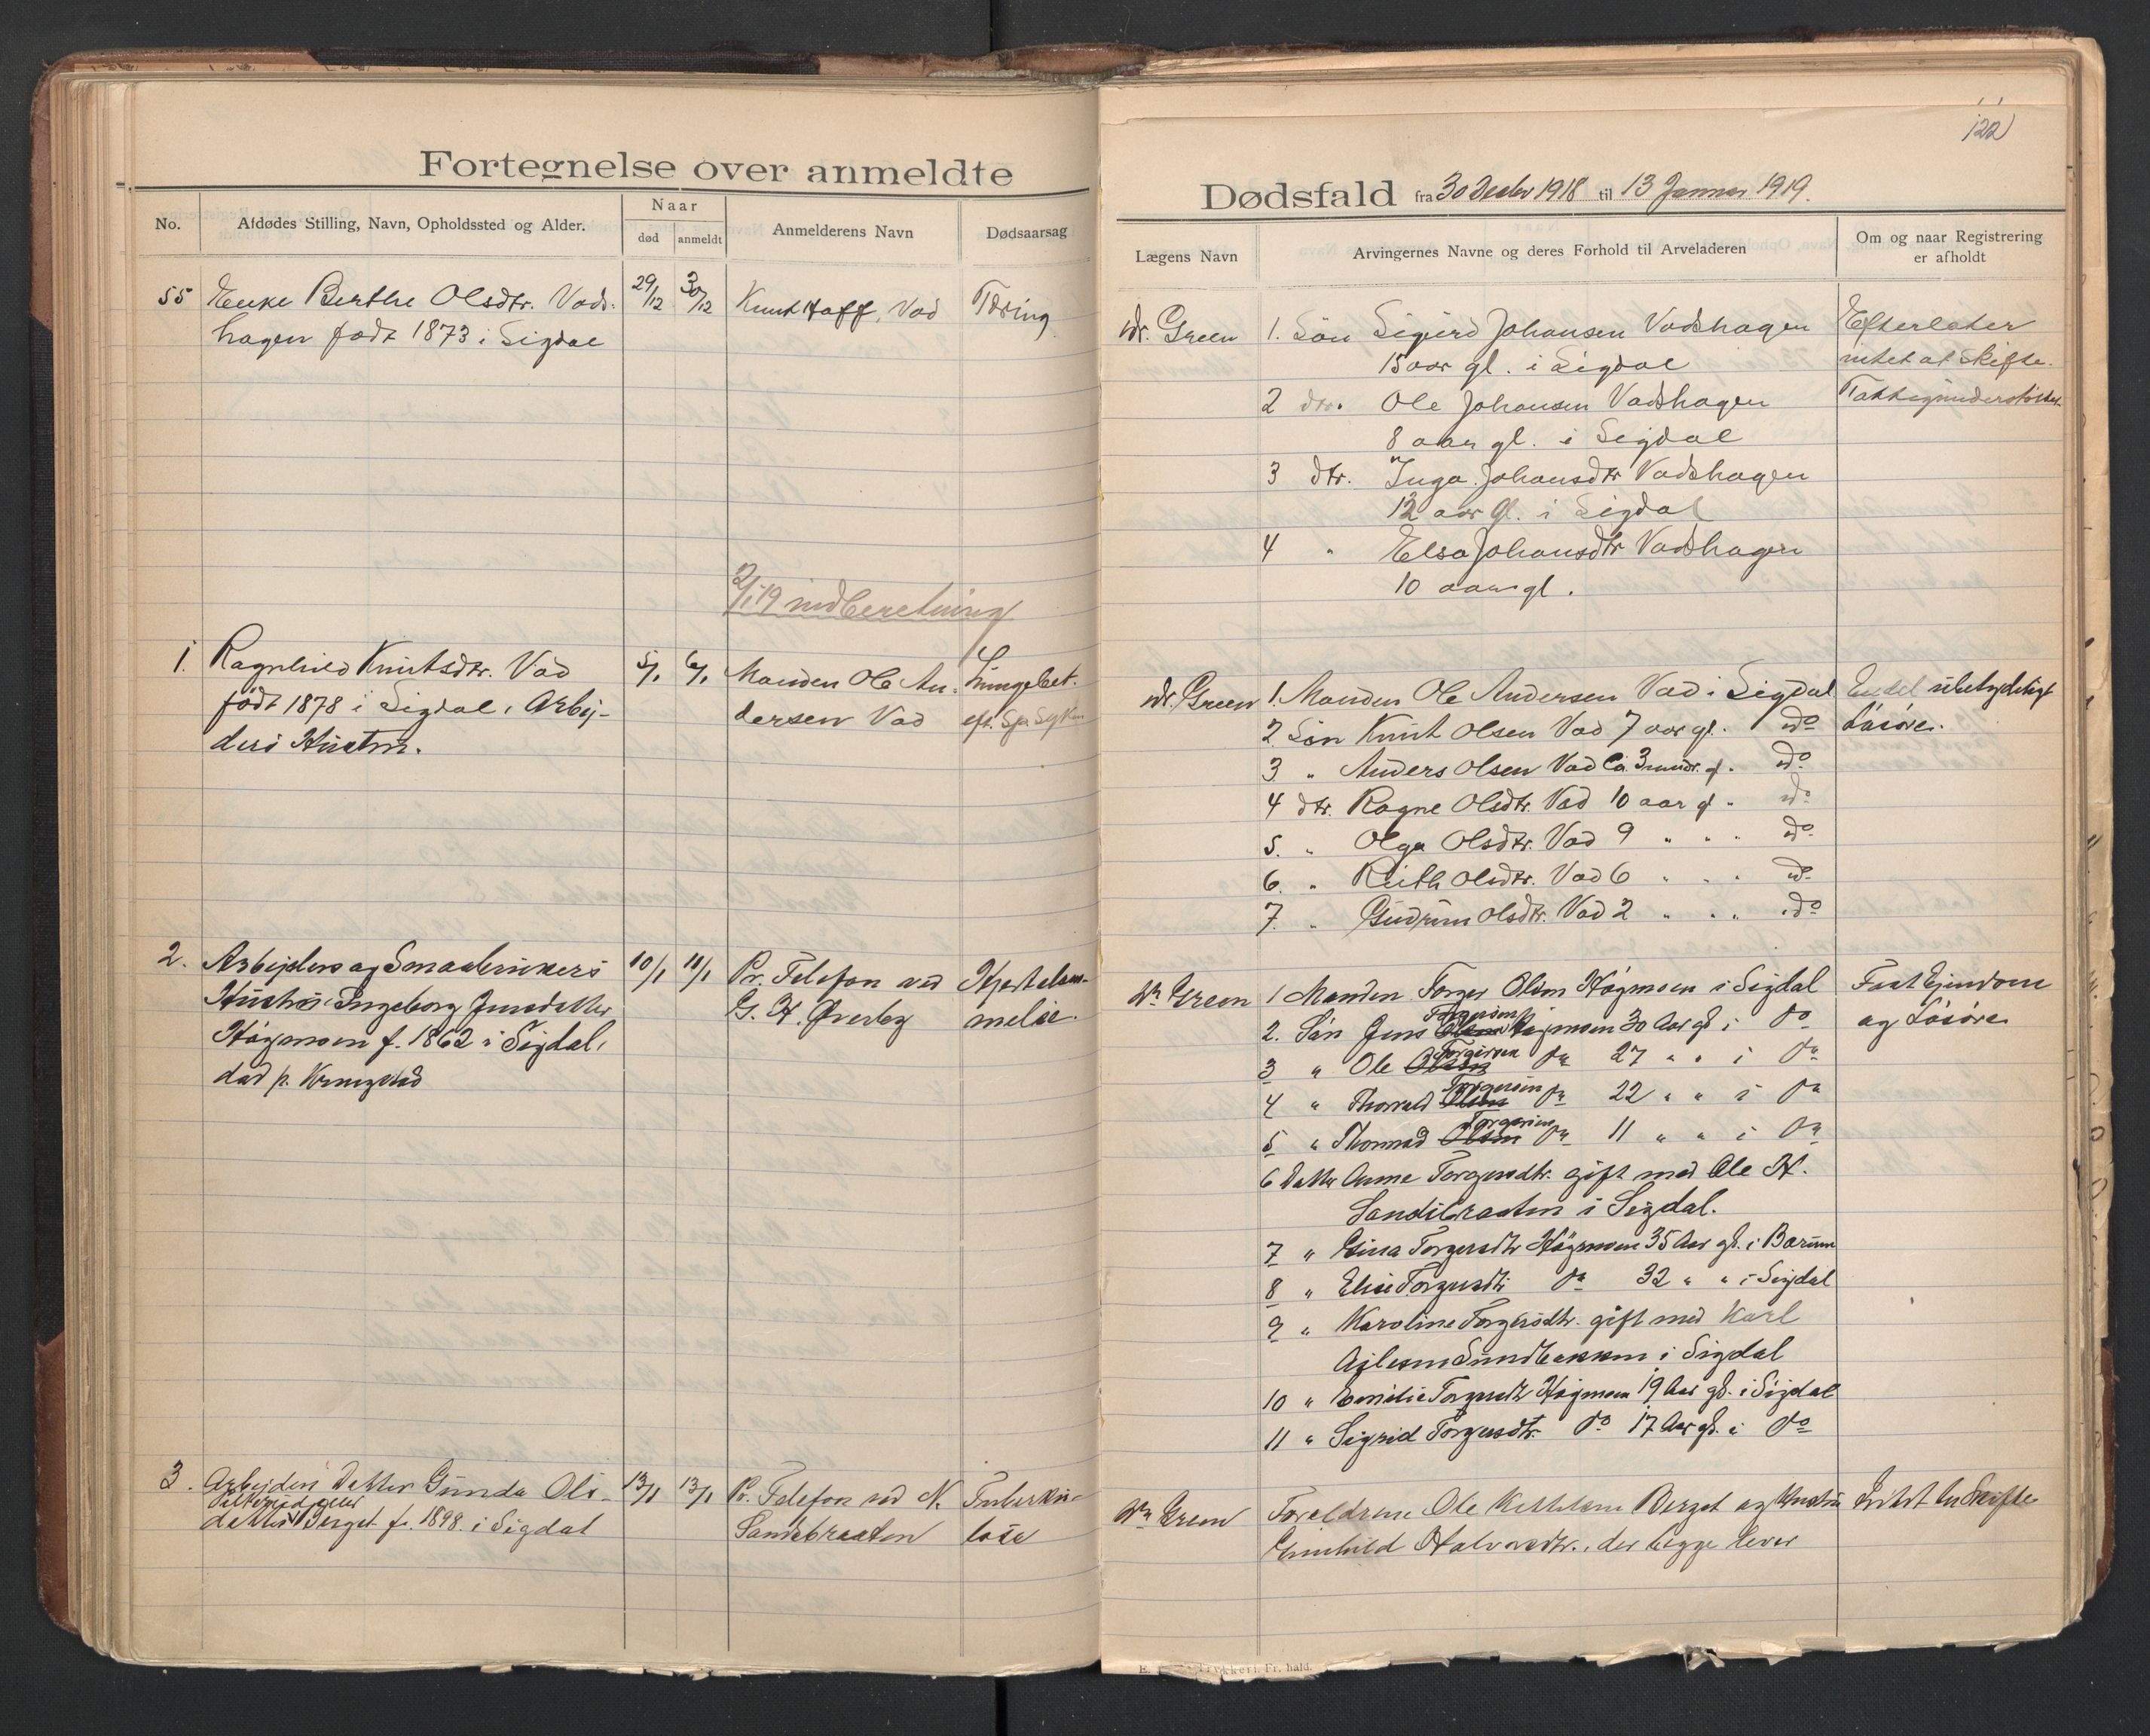 Fortegnelse over anmeldte
No.
Afdødes Stilling, Navn, Opholdssted og Alder.
Naar
død
anmeldt
Anmelderens Navn
Dødsaarsag
55 Enke Berthe Olsdtr. Vads-
hagen født 1873 i Sigdal
29/12 30/12
Knut Hoff, Vad
Tæring
2/1 19 indberetning
1. Ragnhild Knutsdtr. Vad
født 1878 i Sigdal, Arbej-
ders Hustru.
5/1 6/1
Manden Ole An-
dersen Vad
Lungebet.
eft. Sp. Syken
2. Arbejders og Smaabrukers
Hustru Ingeborg Jensdatter
Høgmoen f. 1862 i Sigdal,
død p.
10/1 11/1
Pr. Telefon ved
G. H. Øverby
Hjertelam-
melse.
3. Arbeider Datter Gunda Ols-
datter Berget f. 1898 i Sigdal
13/1 13/1
Pr. Telefon ved N.
Sandebraaten
Tuberku-
lose
122
Dødsfald fra 30 Decbr 1918 til 13 Januar 1919.
Lægens Navn
Arvingernes Navne og deres Forhold til Arveladeren
Om og naar Registrering
er afholdt
Dr. Green
1. Søn Sigurd Johansen Vadshagen
15 aar gl. i Sigdal
2 do. Ole Johansen Vadshagen
8 aar gl. i Sigdal
3 dtr. Inga Johansdtr Vadshagen
12 aar gl. i Sigdal
4 " Elsa Johansdtr Vadshagen
10 aar gl.
Efterlater
intet at skifte.
Fattigunderstøttet
Dr. Green
1. Manden Ole Andersen Vad i Sigdal
2. Søn Knut Olsen Vad 7 aar gl. do
3 " Anders Olsen Vad Ca. 3 mndr. gl. do
4 dtr. Ragne Olsdtr. Vad 10 aar gl. do
5. " Olga Olsdtr. Vad 9 " " do
6. " Ruth Olsdtr. Vad 6 " " do
7. " Gudrun Olsdtr. Vad 2 " " do
En del ubetydeligt
Løsøre.
Dr Green
1 Manden Torger Olsen Høgmoen i Sigdal
2. Søn Jens Olsen Torgersen Høgmoen 30 Aar gl i do
3 " Ole Olsen Torgersen do 27 " " i do
4 " Thorvald Olsen Torgersen do 22 " " i do
5 " Olsen Torgersen do 11 " " i do
6 Datter Anne Torgersdtr. gift med Ole H.
Sandebraaten i Sigdal.
7 " Gina Torgersdtr Høgmoen 35 Aar gl. i Bærum
8 " Elise Torgersdtr do 32 " " i Sigdal
9 " Karoline Torgersdtr. gift med Karl
Sundbakken i Sigdal
10 " Emilie Torgersdtr Høgmoen 19 Aar gl. i Sigdal
11 " Sigrid Torgersdtr. do 17 Aar gl. i do
Fast Ejendom
og Løsøre
Dr Green
Forældrene Ole Berget og Hustru
Gunhild Halvorsdtr., der begge lever
Intet at Skifte